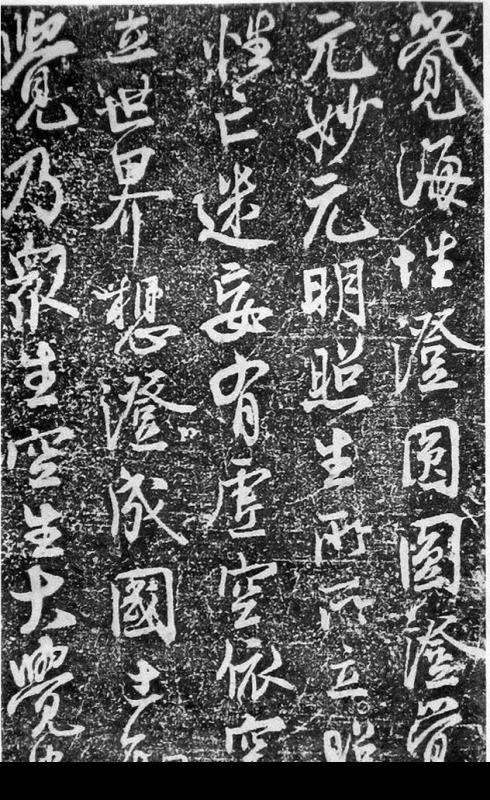 覺海性澄圓圓澄覺
元妙元明照生所所立照
性亡迷妄有虛空依空
立世界想澄成國土知
覺乃眾生空生大覺